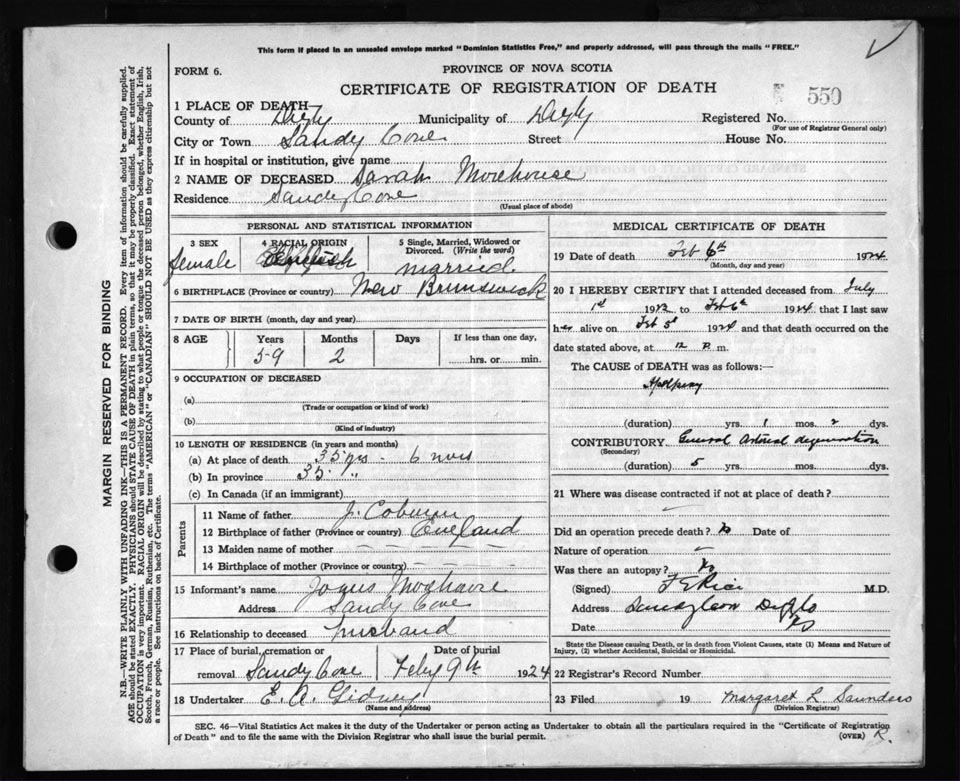 This form if placed in an unsealed envelope marked "Dominion Statistics Free," and properly addressed, will pass through the mails "FREE."
FORM 6.
PROVINCE OF NOVA SCOTIA
CERTIFICATE OF REGISTRATION OF DEATH
550
1 PLACE OF DEATH
County of Digby Municipality of Digby Registered No.
(For use of Registrar General only)
City or Town Sandy Cove Street House No.
If in hospital or institution, give name
2 NAME OF DECEASED Sarah Morehouse
Residence Sandy Cove
(Usual place of abode)
PERSONAL AND STATISTICAL INFORMATION
3 SEX female
4 RACIAL ORIGIN English
5 Single, Married, Widowed or Divorced. (Write the word) married
6 BIRTHPLACE (Province or country) New Brunswick
7 DATE OF BIRTH (month, day and year)
8 AGE Years Months Days If less than one day,
59 2 hrs. or min.
9 OCCUPATION OF DECEASED
(a)
(Trade or occupation or kind of work)
(b)
(Kind of industry)
10 LENGTH OF RESIDENCE (in years and months)
(a) At place of death 35 yrs - 6 mos
(b) In province 35 "
(c) In Canada (if an immigrant)
Parents
11 Name of father J. Coburn
12 Birthplace of father (Province or country) England
13 Maiden name of mother
14 Birthplace of mother (Province or country)
15 Informant's name Morehouse
Address Sandy Cove
16 Relationship to deceased husband
17 Place of burial, cremation or removal Date of burial
Sandy Cove Feby 9th 1924
18 Undertaker E. A. Gidney
(Name and address)
MEDICAL CERTIFICATE OF DEATH
19 Date of death Feb 6th 1924
(Month, day and year)
20 I HEREBY CERTIFY that I attended deceased from July
1st 19 to Feb 6th 1924 that I last saw
her alive on Feb 5th 1924 and that death occurred on the
date stated above, at 12 P. m.
The CAUSE of DEATH was as follows:—
(duration) yrs. 1 mos. 2 dys.
CONTRIBUTORY General Arterial degeneration
(Secondary)
(duration) 5 yrs. mos. dys.
21 Where was disease contracted if not at place of death?
Did an operation precede death? No Date of
Nature of operation
Was there an autopsy? No
(Signed) F E Rice M.D.
Address Sandy Cove Digby Co
Date NS
State the Disease causing Death, or in death from Violent Causes, state (1) Means and Nature of Injury, (2) whether Accidental, Suicidal or Homicidal.
22 Registrar's Record Number
23 Filed 19 Margaret L Saunders
(Division Registrar)
SEC. 46—Vital Statistics Act makes it the duty of the Undertaker or person acting as Undertaker to obtain all the particulars required in the "Certificate of Registration
of Death" and to file the same with the Division Registrar who shall issue the burial permit.
(OVER) R.
MARGIN RESERVED FOR BINDING
N.B.—WRITE PLAINLY WITH UNFADING INK—THIS IS A PERMANENT RECORD. Every item of information should be carefully supplied.
AGE should be stated EXACTLY. PHYSICIANS should STATE CAUSE OF DEATH in plain terms, so that it may be properly classified. Exact statement of
OCCUPATION is very important. RACIAL ORIGIN will be described by stating to what people or tongue the deceased person belonged, whether English, Irish,
Scotch, French, German, Russian, Ruthenian, etc. The terms "AMERICAN" or "CANADIAN" SHOULD NOT BE USED as they express citizenship but not
a race or people. See instructions on back of Certificate.